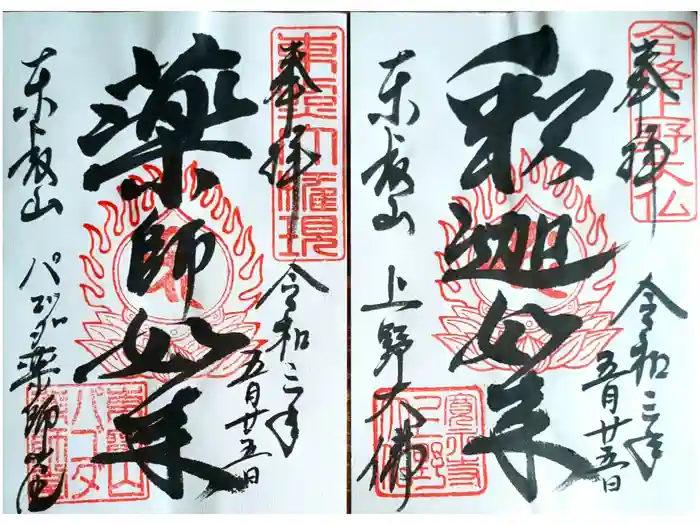 奉拝
東照大権現
令和三年
五月廿五日
薬師如来
東叡山
パゴダ薬師堂
奉拝
合格上野大仏
令和三年
五月廿五日
釈迦如来
東叡山
上野大佛